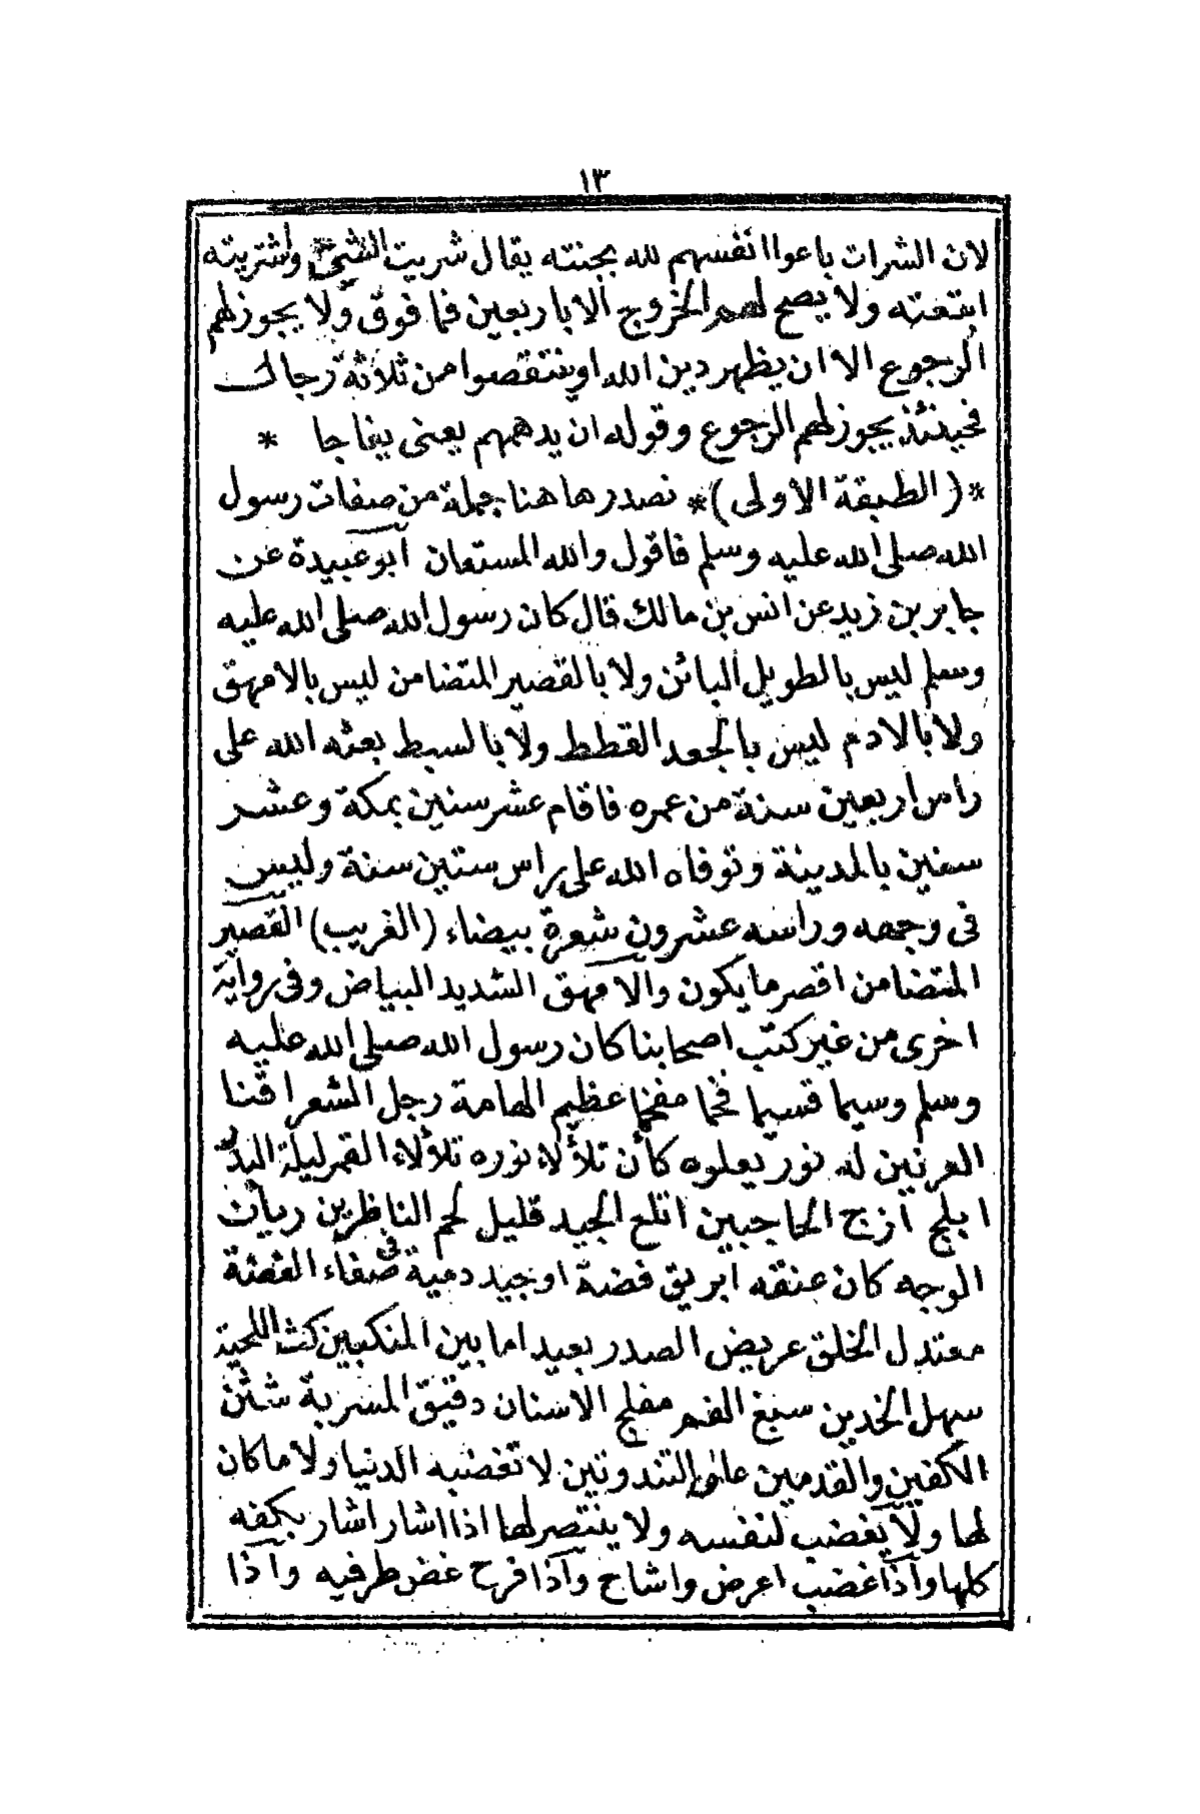 ١٣
لان الشرات باعوا انفسهم لله بجنته يقال شريت الشيئ واشتريته
ابتعته ولا يصح لهم الخروج الا باربعين فما فوق ولا يجوز لهم
الرجوع الا ان يظهر دين الله او ينتقصوا من ثلاثة رجال
فحينئذ يجوز لهم الرجوع وقوله ان يدهمهم يعنى يفاجا *
*(الطبقة الاولى)* نصدر هاهنا جملة من صفات رسول
الله صلى الله عليه وسلم فاقول والله المستعان ابو عبيدة عن
جابر بن زيد عن انس بن مالك قال كان رسول الله صلى الله عليه
وسلم ليس بالطويل البائن ولا بالقصير المتضامن ليس بالامهق
ولا بالادم ليس بالجعد القطط ولا بالسبط بعثه الله على
راس اربعين سنة من عمره فاقام عشر سنين بمكة وعشر
سنين بالمدينة وتوفاه الله على راس ستين سنة وليس
فى وجهه وراسه عشرون شعرة بيضاء (الغريب) القصير
المتضامن اقصر ما يكون والامهق الشديد البياض وفى رواية
اخرى من غير كتب اصحابنا كان رسول الله صلى الله عليه
وسلم وسيما قسيما فخما مفخما عظيم الهامة رجل الشعر اقنا
العرنين له نور يعلوه كأن تلألاء نوره تلؤلاء القمر ليلة البدر
ابلج ازج الحاجبين اتلع الجيد قليل لحم الناظرين ريان
الوجه كان عنقه ابريق فضة او جيد دمية فى صفاء الفضة
معتدل الخلق عريض الصدر بعيد اما بين المنكبين كث اللحية
سهل الخدين سبغ الفم مفلج الاسنان دقيق المسربة شثن
الكفين والقدمين عالى التندوتين لا تغضبه الدنيا ولا ما كان
لها ولا يغضب لنفسه ولا ينتصر لها اذا اشار اشار بكفه
كلها واذا غضب اعرض واشاح واذا فرح غض طرفيه واذا